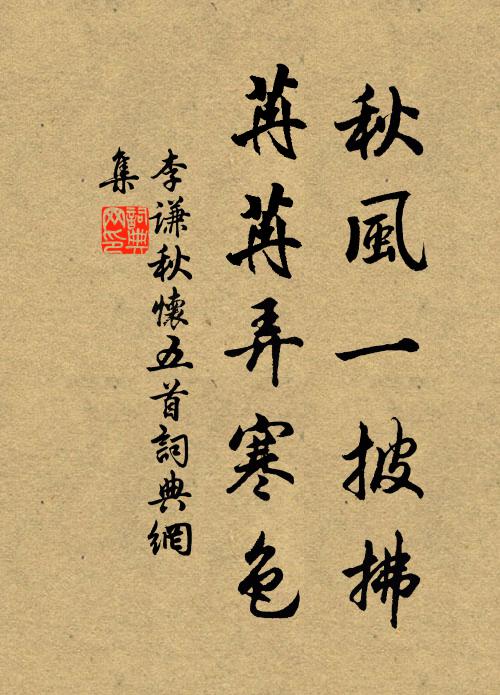 秋風一披拂
苒苒弄寒色
李谦秋懷五首詞典網
集
詞典网印